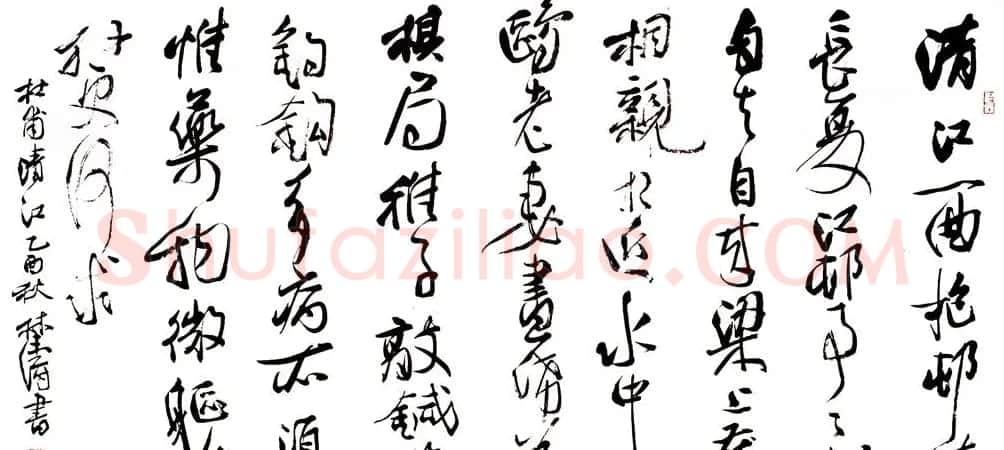 清江一曲抱邨
長夏江邨事〻
自去自来梁上
相親相近水中
鷗老妻畫紙
棋局稚子敲鍼
釣鉤多病所須
惟藥物微軀
外更何求
杜甫清江乙酉秋書
Shufaziliao.COM